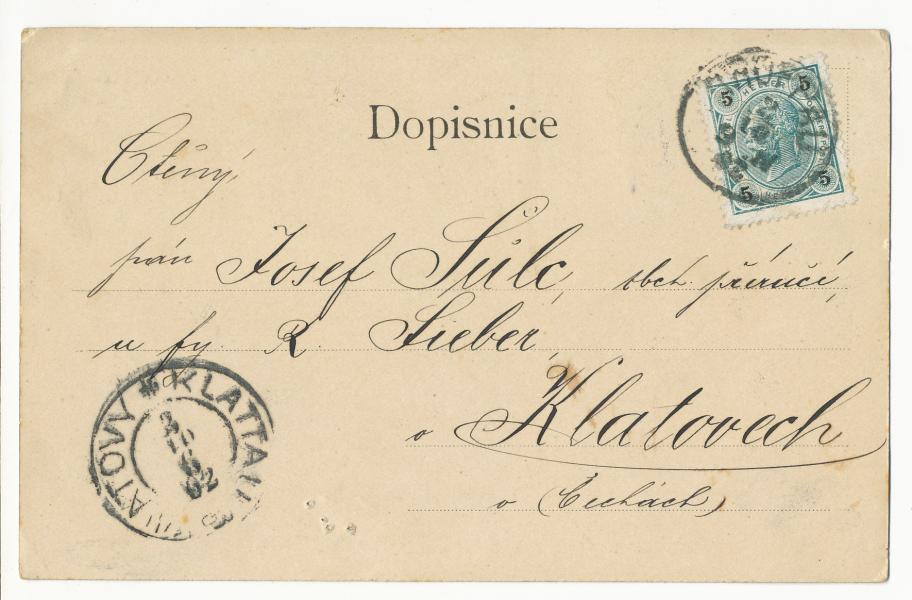 Dopisnice
Ctěný
pán Josef Šulc, obch. příručí,
u fy. R. Sieber,
v Klatovech
v Čechách
KLATTAU
KLATOVY
5 5
5 5